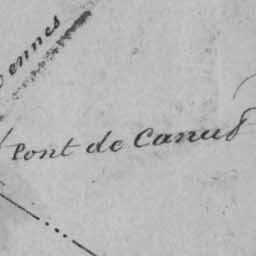 ennes
Pont de Canut